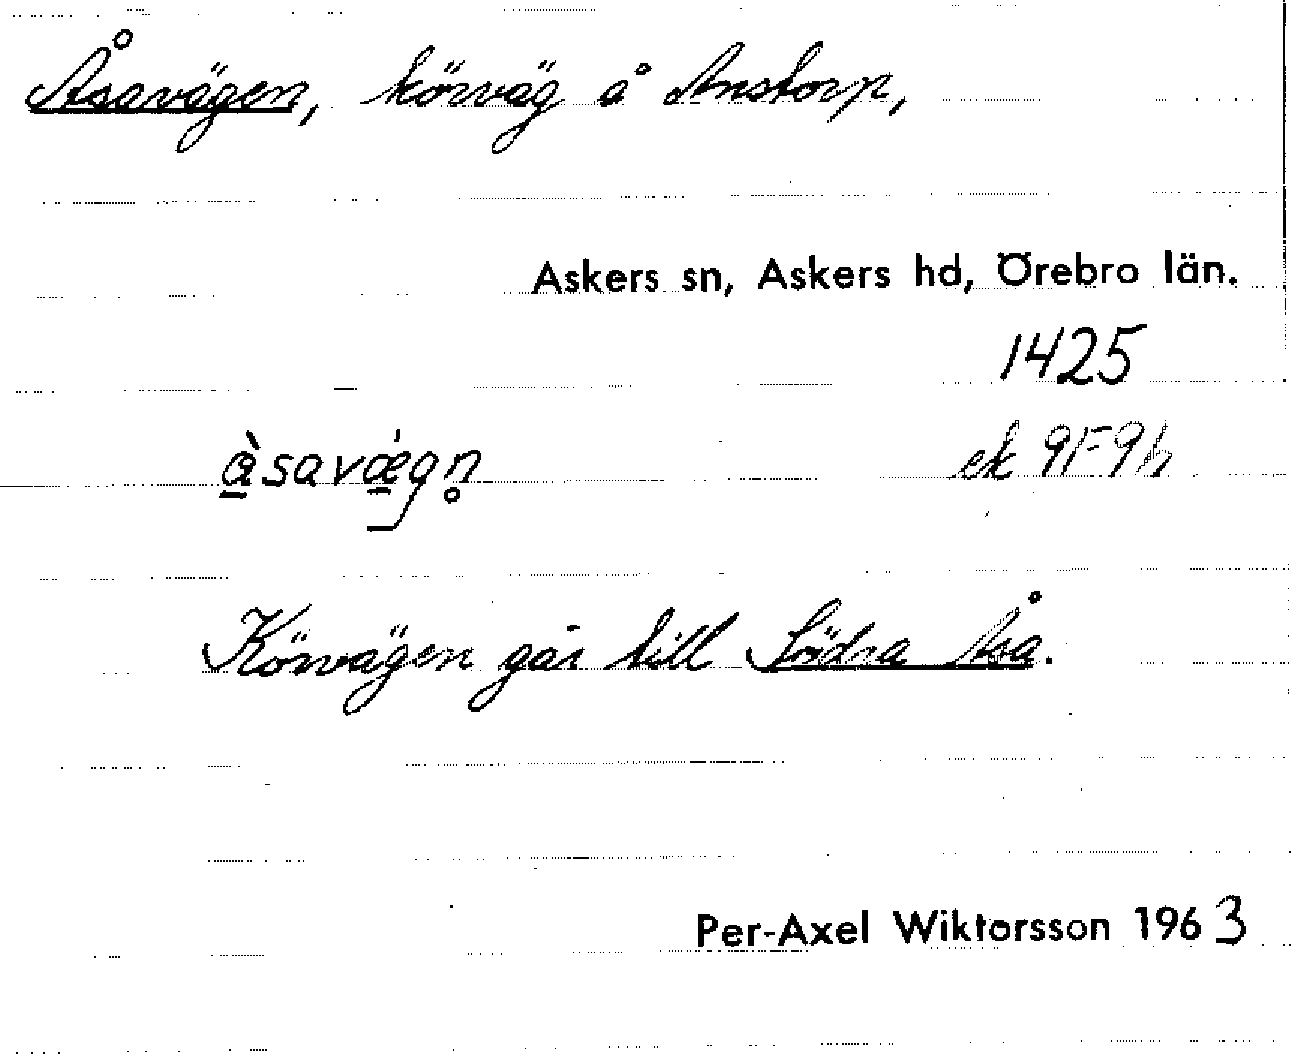 Åsavägen, körväg å Anstorp,
Askers sn, Askers hd, Örebro län.
1425
ek 9F9h
Körvägen går till Södra Åsa.
Per-Axel Wiktorsson 1963